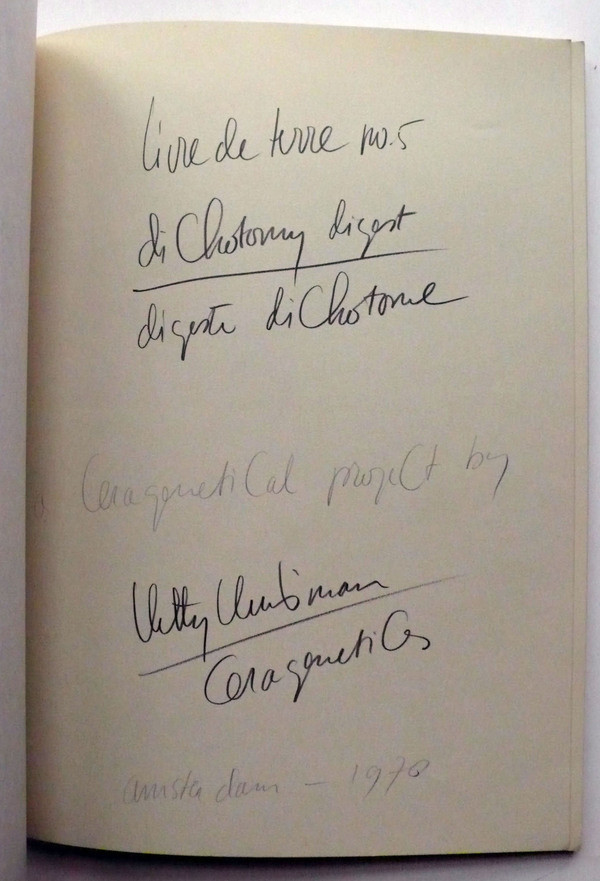 livre de terre no.5
diChotomy digest
digeste diChotome
a CeragenetiCal projeCt by
Hetty Huisman
CeragenetiCs
amsterdam – 1978